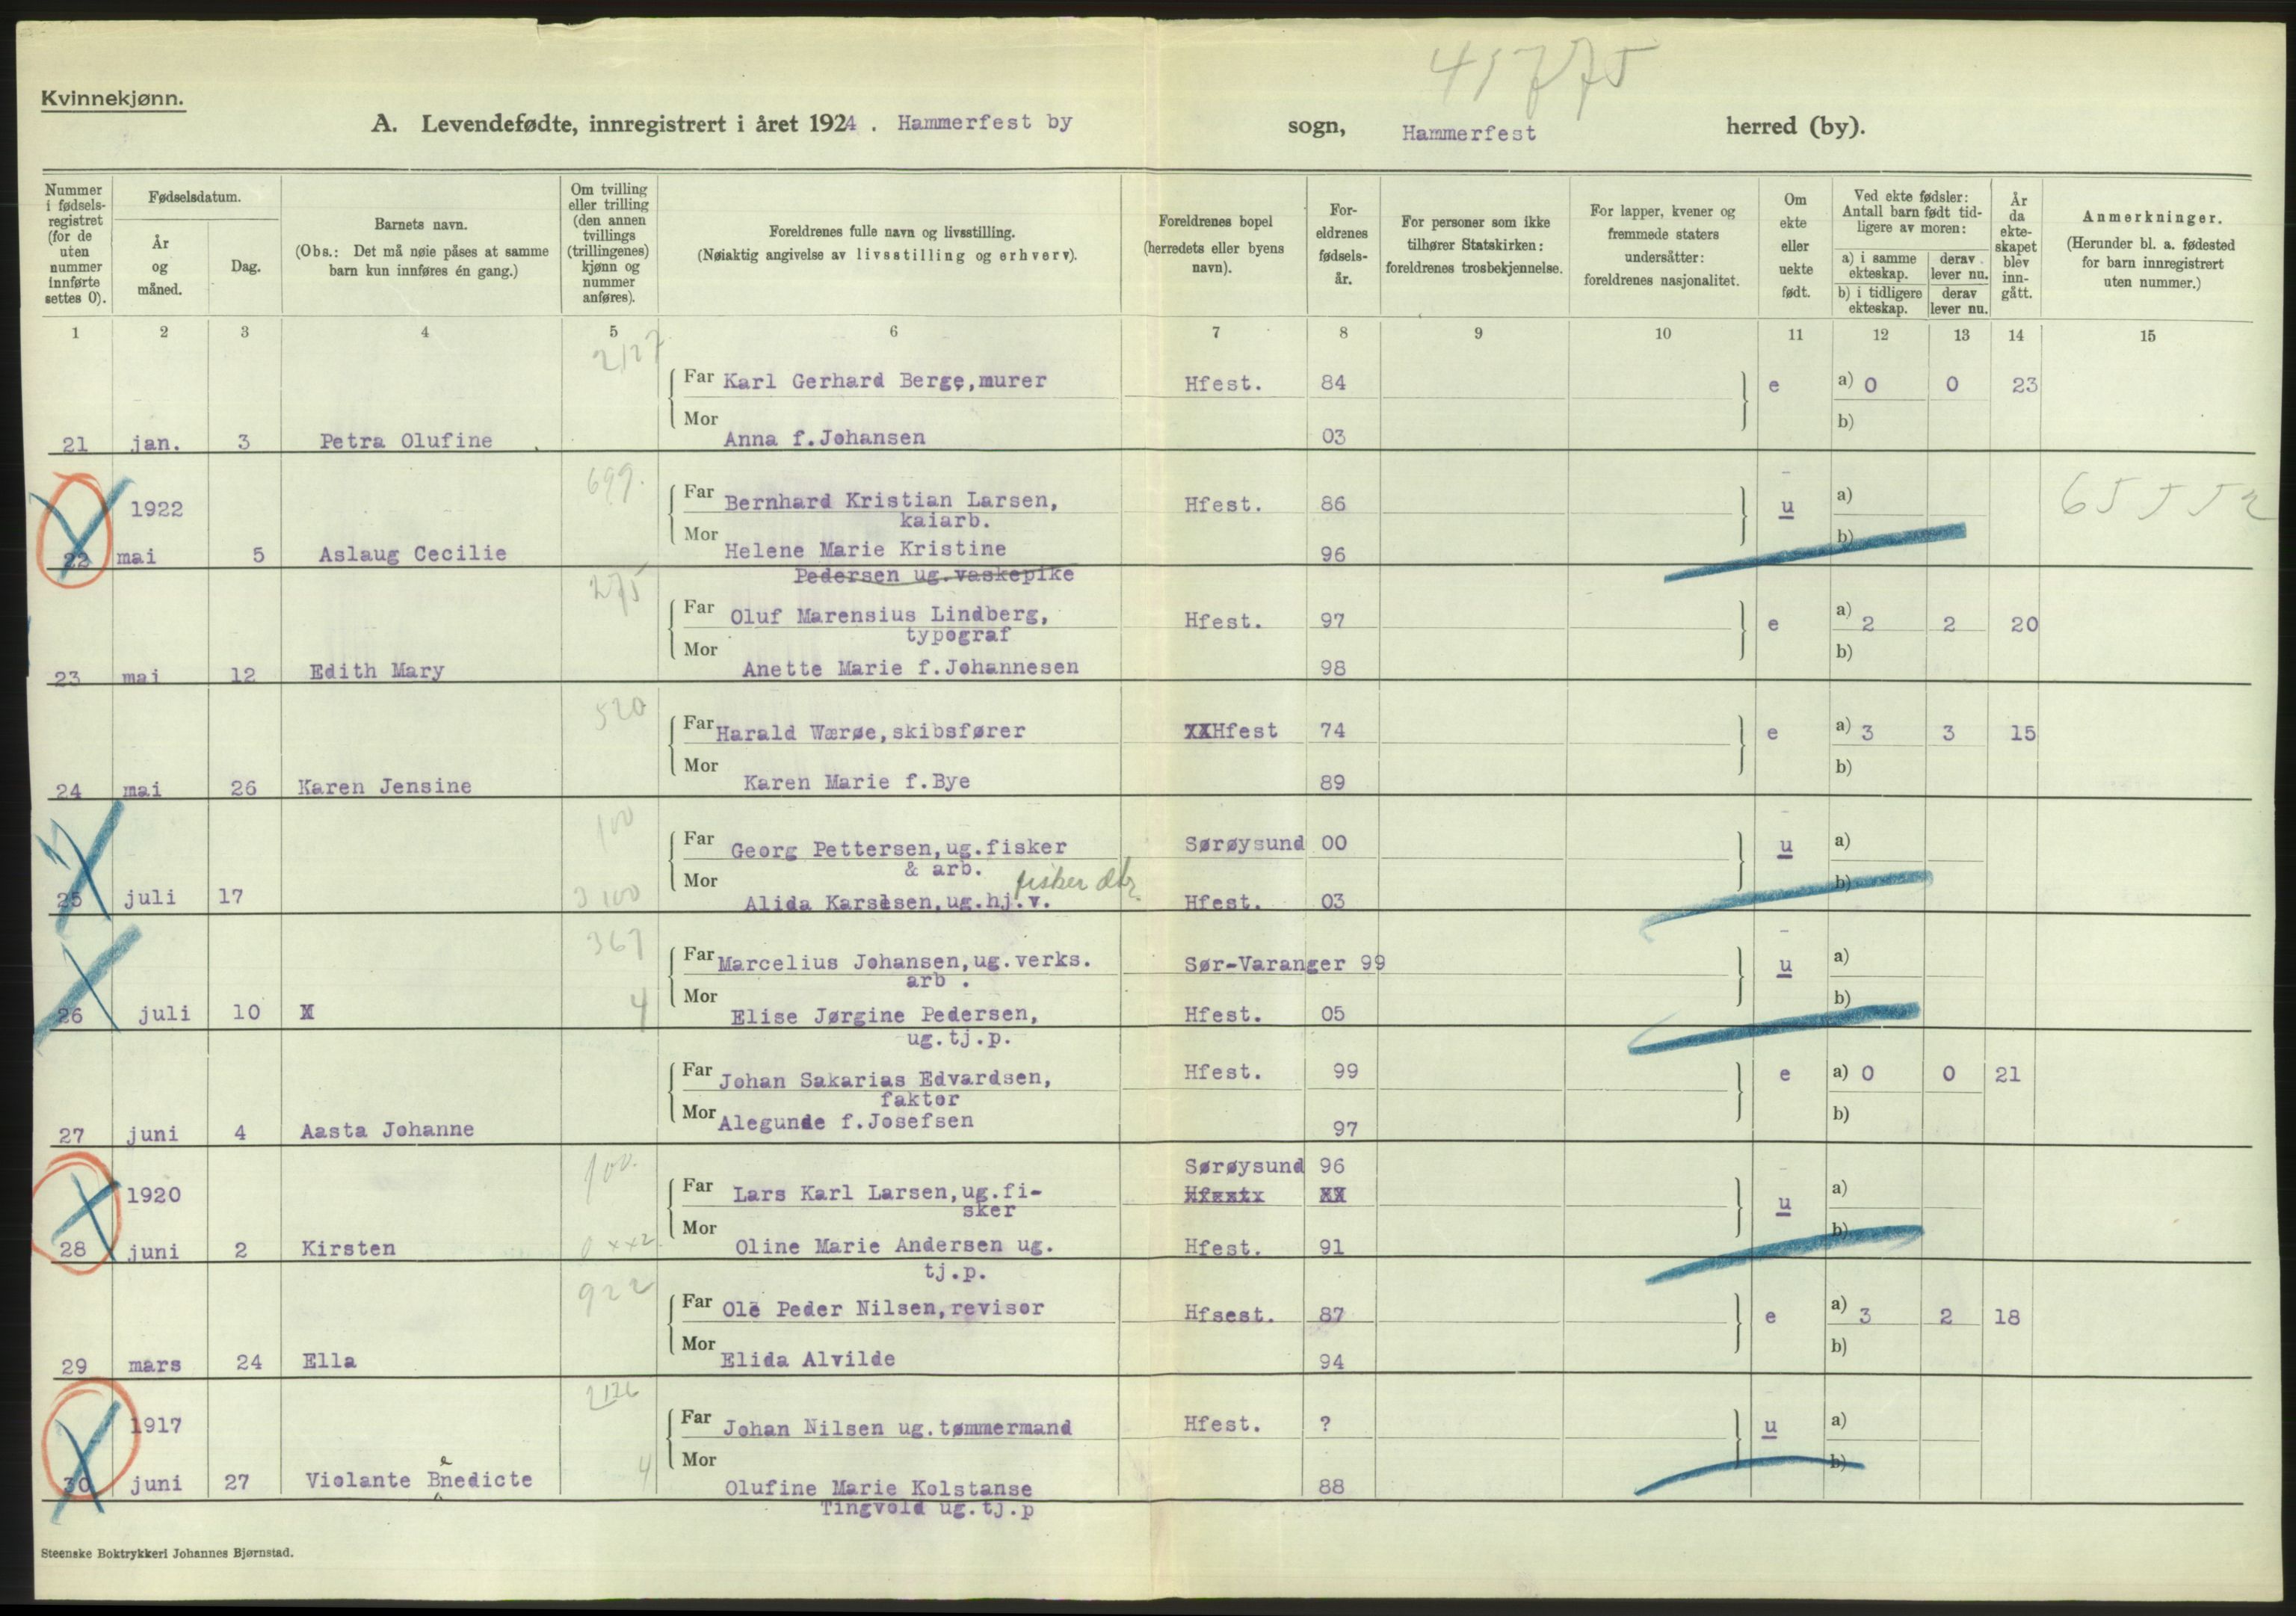 41775
Kvinnekjønn.
A. Levendefødte, innregistrert i året 1924. Hammerfest by sogn, Hammerfest herred (by).
Nummer i fødsels-registret (for de uten nummer innførte settes 0).
Fødselsdatum.
År og måned.
Dag.
Barnets navn.
(Obs.: Det må nøie påses at samme barn kun innføres én gang.)
Om tvilling eller trilling (den annen tvillings (trillingenes) kjønn og nummer anføres).
Foreldrenes fulle navn og livsstilling.
(Nøiaktig angivelse av livsstilling og erhverv).
Foreldrenes bopel (herredets eller byens navn).
For-eldrenes fødsels-år.
For personer som ikke tilhører Statskirken: foreldrenes trosbekjennelse.
For lapper, kvener og fremmede staters undersåtter: foreldrenes nasjonalitet.
Om ekte eller uekte født.
Ved ekte fødsler: Antall barn født tid-ligere av moren:
a) i samme ekteskap. derav lever nu.
b) i tidligere ekteskap. derav lever nu.
År da ekte-skapet blev inn-gått.
Anmerkninger.
(Herunder bl. a. fødested for barn innregistrert uten nummer.)
1 2 3 4 5 6 7 8 9 10 11 12 13 14 15
2127
Far Karl Gerhard Berge, murer Hfest. 84 e a) 0 0 23
Mor b)
21 jan. 3 Petra Olufine Anna f.Johansen 03
699.
1922 Far Bernhard Kristian Larsen, Hfest. 86 u a) 65552
kaiarb.
Mor b)
22 mai 5 Aslaug Cecilie Helene Marie Kristine 96
Pedersen ug.vaskepike
275
Far Oluf Marensius Lindberg, Hfest. 97 e a) 2 2 20
typograf
Mor b)
23 mai 12 Edith Mary Anette Marie f.Johannesen 98
520
Far Harald Wærøe, skibsfører XXHfest 74 e a) 3 3 15
Mor b)
24 mai 26 Karen Jensine Karen Marie f.Bye 89
100
Far Georg Pettersen, ug.fisker Sørøysund 00 u a)
& arb.
Mor fisker dtr b)
25 juli 17 3100 Alida Karslsen, ug.hj.v. Hfest. 03
367
Far Marcelius Johansen, ug.verks. Sør-Varanger 99 u a)
arb .
Mor b)
26 juli 10 X 4 Elise Jørgine Pedersen, Hfest. 05
ug.tj.p.
Far Johan Sakarias Edvardsen, Hfest. 99 e a) 0 0 21
faktor
Mor b)
27 juni 4 Aasta Johanne Alegunde f.Josefsen 97
100. Sørøysund 96
1920 Far Lars Karl Larsen, ug.fi- XX u a)
sker
Mor b)
28 juni 2 Kirsten 0xx2 Oline Marie Andersen ug. Hfest. 91
tj.p.
922
Far Ole Peder Nilsen, revisor Hfsest. 87 e a) 3 2 18
Mor b)
29 mars 24 Ella Elida Alvilde 94
2126
1917 Far Johan Nilsen ug.tømmermand Hfest. ? u a)
Mor b)
30 juni 27 Violante Benedicte 4 Olufine Marie Kolstanse 88
Tingvold ug.tj.p
Steenske Boktrykkeri Johannes Bjørnstad.